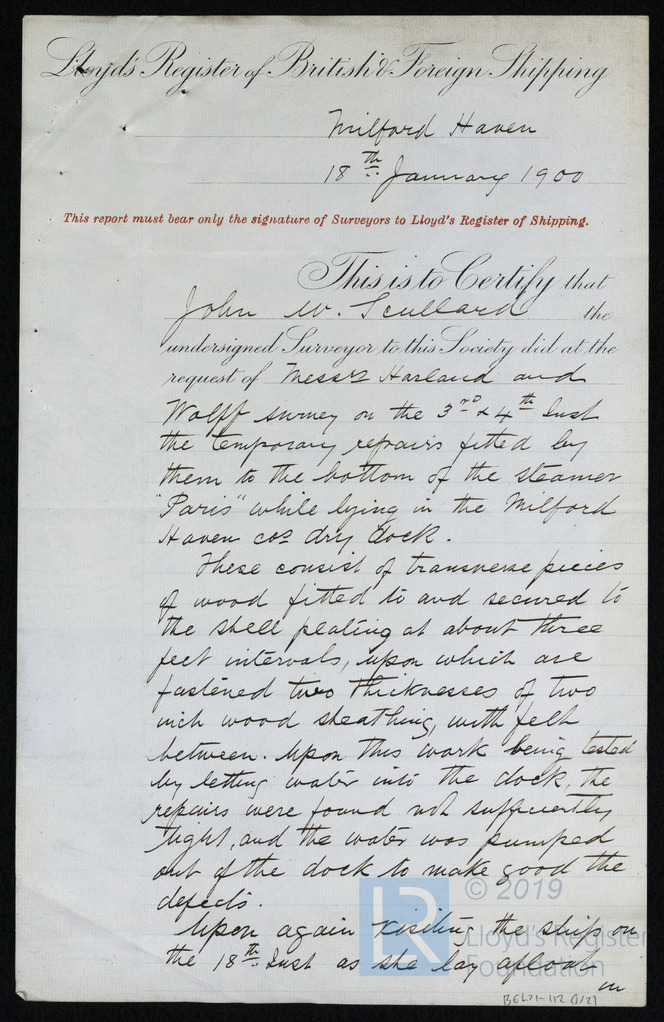 Lloyd's Register of British & Foreign Shipping
Milford Haven
18th January 1900
This report must bear only the signature of Surveyors to Lloyd's Register of Shipping.
This is to Certify that
John W. Scullard the
undersigned Surveyor to this Society did at the
request of Messrs Harland and
Wolff survey on the 3rd & 4th Inst
the temporary repairs fitted by
them to the bottom of the steamer
"Paris" while lying in the Milford
Haven Cos dry dock.
These consist of transverse pieces
of wood fitted to and secured to
the shell plating at about three
feet intervals, upon which are
fastened two thicknesses of two
inch wood sheathing, with felt
between. Upon this work being tested
by letting water into the dock, the
repairs were found not sufficiently
tight, and the water was pumped
out of the dock to make good the
defects.
Upon again visiting the ship on
the 18th Inst as she lay afloat
in
LR © 2019
Lloyd's Register
Foundation
BEL21-112 (1/2)